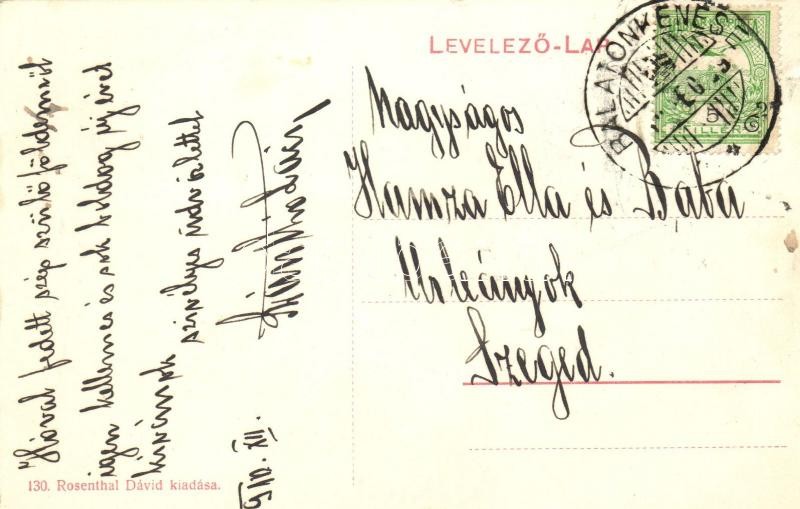 LEVELEZŐ-LAP
BALATONKENESE
5
FILLÉR
Nagyságos
Hamza Ella és Baba
Urleányok
Szeged.
Hóval fedett szép szülőföldemről
igen kellemes és sok boldog új évet
kívánok szívélyes üdvözlettel
910. XII.
130. Rosenthal Dávid kiadása.